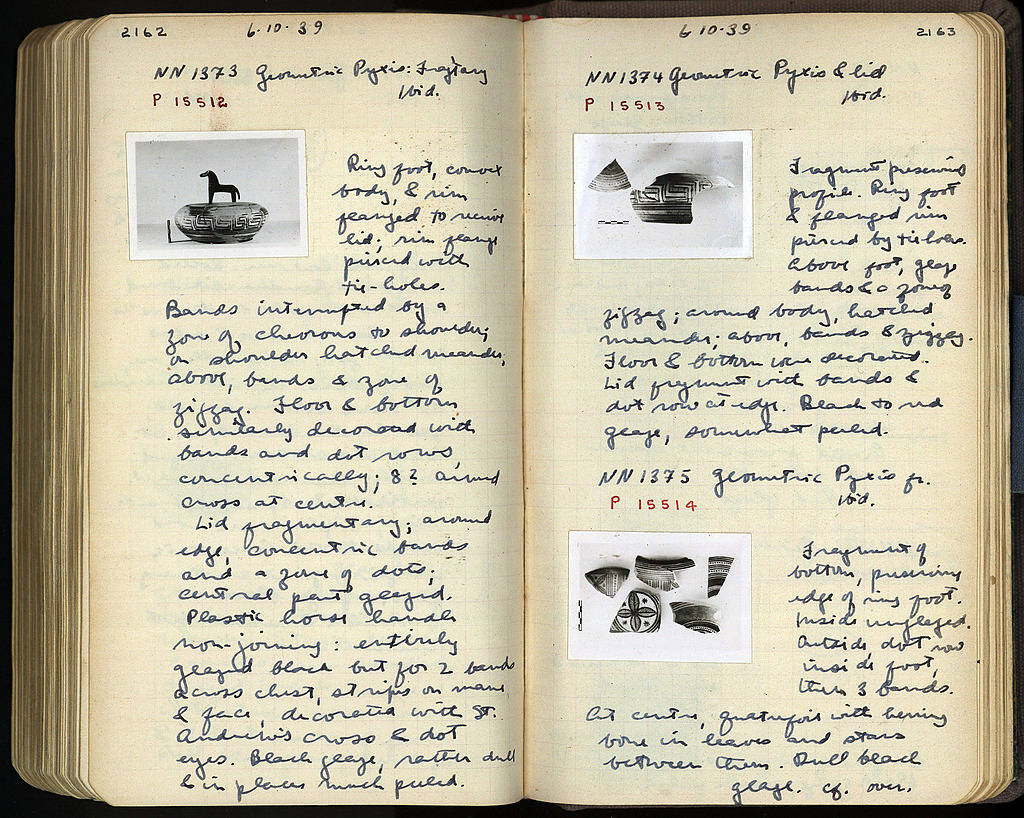 2162
6·10·39
NN 1373 Geometric Pyxis: Fragtary
Ibid.
P 15512
Ring foot, convex
body, & rim
flanged to receive
lid; rim flange
pierced with
tie-holes.
Bands interrupted by a
zone of chevrons to shoulder;
on shoulder hatched meander,
above, bands & zone of
zigzag. Floor & bottom
similarly decorated with
bands and dot rows,
concentrically; 8? around
cross at centre.
Lid fragmentary; around
edge, concentric bands
and a zone of dots;
central part glazed.
Plastic horse handle
non-joining: entirely
glazed black but for 2 bands
across chest, stripes on mane
& face, decorated with St.
Andrew's cross & dot
eyes. Black glaze, rather dull
& in places much peeled.
2163
6·10·39
NN 1374 Geometric Pyxis & lid
Ibid.
P 15513
Fragment preserving
profile. Ring foot
& flanged rim
pierced by tie-holes.
Above foot, glaze
bands & a zone of
zigzag; around body, hatched
meander; above, bands & zigzag.
Floor & bottom were decorated.
Lid fragment with bands &
dot row at edge. Black to red
glaze, somewhat peeled.
NN 1375 Geometric Pyxis fr.
Ibid.
P 15514
Fragment of
bottom, preserving
edge of ring foot.
Inside unglazed.
Outside, dot row
inside foot,
then 3 bands.
At centre, quatrefoil with herring
bone in leaves and stars
between them. Dull black
glaze. cf. over.